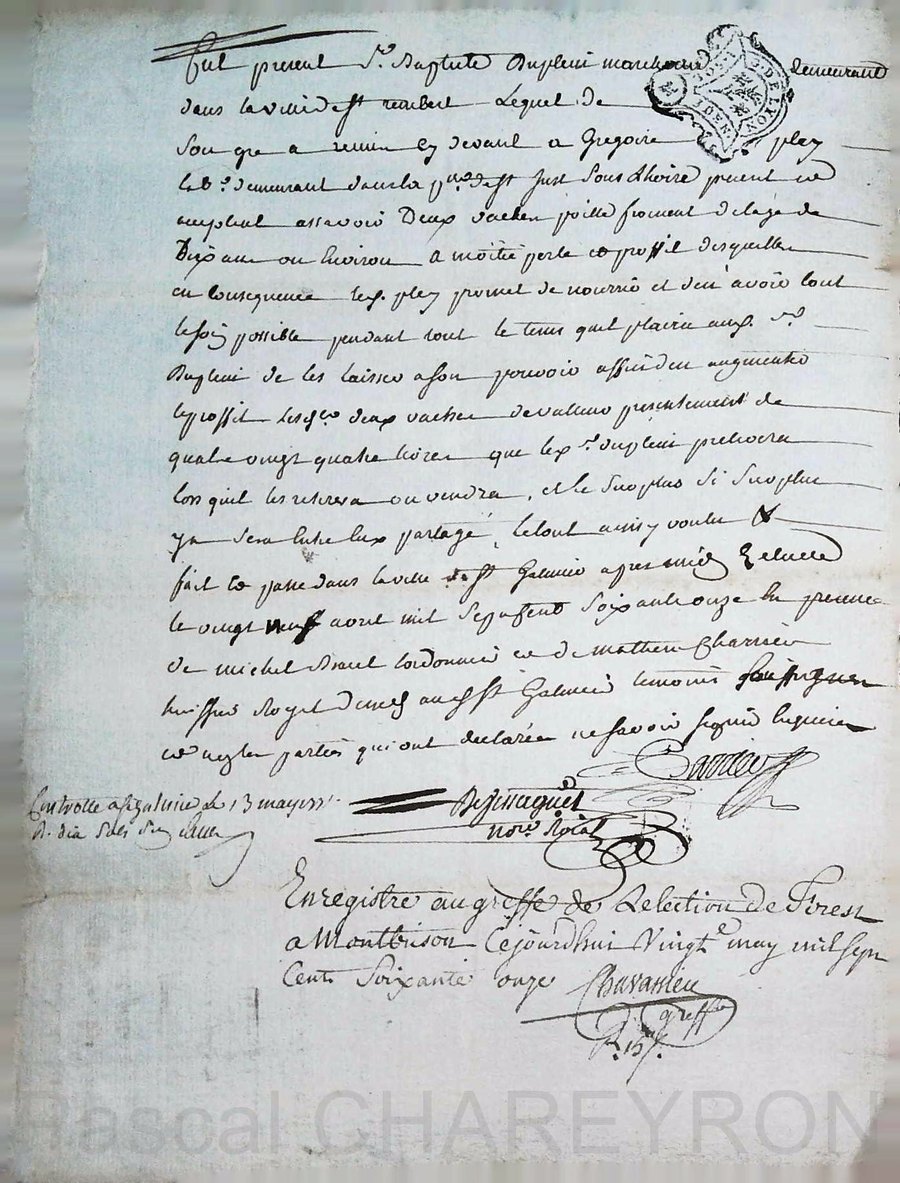 Fut present Sr. Baptiste Dupleini marchand demeurant
dans la ville de st rembert Lequel de
Son gre a remis cy devant a Gregoire pley
demeurant dans la de st Just Sous Lhoire present et
acceptant assavoir Deux vaches poille froment de lage de
Dix ans ou Environ a moitié perte et proffit desquelles
en consequence led. pley promet de nourrir et den avoir tout
le soin possible pendant tout le tems quil plaira aud. sr.
Dupleini de les laisser a son pouvoir affin den augmenter
le proffit Lesd. deux vaches de valleur presentement de
quatre vingt quatre livres que led. sr. dupleini prelevera
lors quil les retirera ou vendra, et le Surplus Si Surplus
y a Sera Entre Eux partagé, le tout ainsy voulu &
fait et passé dans la ville de st Galmier apres midy
le vingt neuf avril mil Sept cent Soixante onze En presence
de michel cordonnier et de mathieu Charrier
huissier Royal aud. st Galmier temoins Soussignes
et non les parties qui ont declarées ne savoir signer Enquises
Controlle a st galmier le 13 may 1771
R. dix sols Six
not. Roial
Enregistré au greffe de Lelection de Forest
a Montbrison Cejourdhui Vingt e may mil sept
Cent Soixante onze Chavassieu
greffier
R. 15 s.
GENE DE LYON
Pascal CHAREYRON